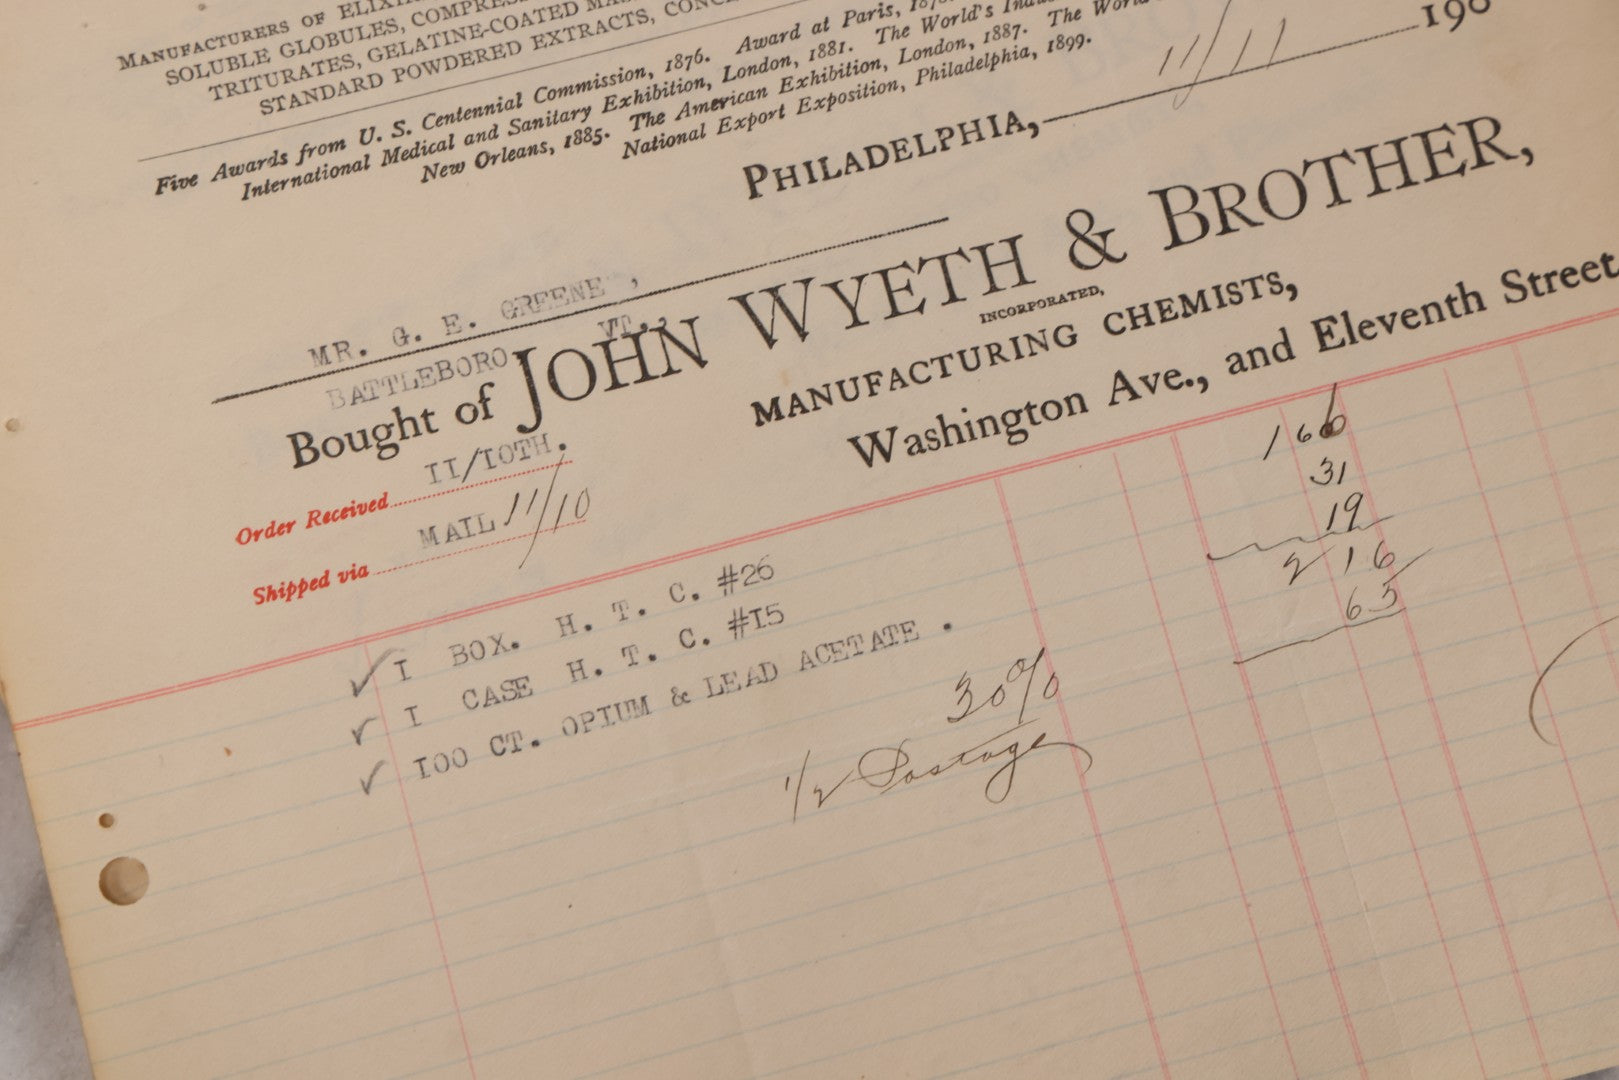 MANUFACTURERS OF
SOLUBLE GLOBULES,
TRITURATES, GELATINE-COATED
STANDARD POWDERED EXTRACTS,
Five Awards from U. S. Centennial Commission, 1876. Award at Paris,
International Medical and Sanitary Exhibition, London, 1881. The World's
New Orleans, 1885. The American Exhibition, London, 1887. The
National Export Exposition, Philadelphia, 1899.
PHILADELPHIA, 11/11 190
MR. G. E. GREENE ,
BATTLEBORO VT.,
Bought of JOHN WYETH & BROTHER,
INCORPORATED,
MANUFACTURING CHEMISTS,
Washington Ave., and Eleventh Street.
Order Received II/IOTH.
Shipped via MAIL 11/10
I BOX. H. T. C. #26 166
I CASE H. T. C. #I5 31
I00 CT. OPIUM & LEAD ACETATE . 19
216
30% 65
1/2 Postage